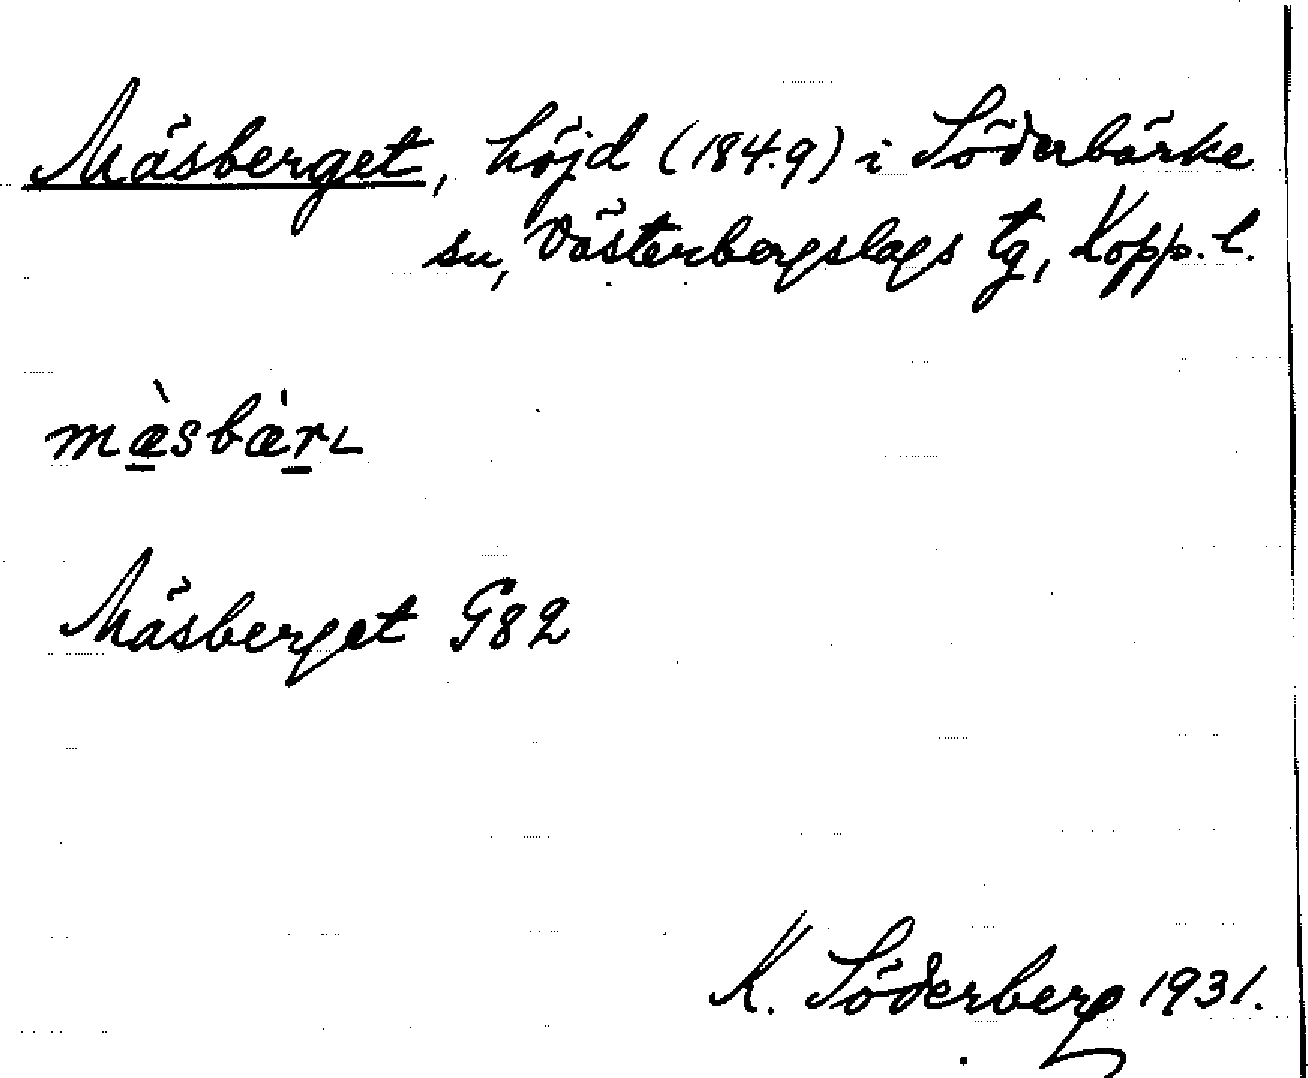 Mäsberget, höjd (184.9) i Söderbärke
sn, Västerbergslags tg, Kopp. l.
mæ̠̀sbæ̀r̠
Mäsberget G82
K. Söderberg 1931.